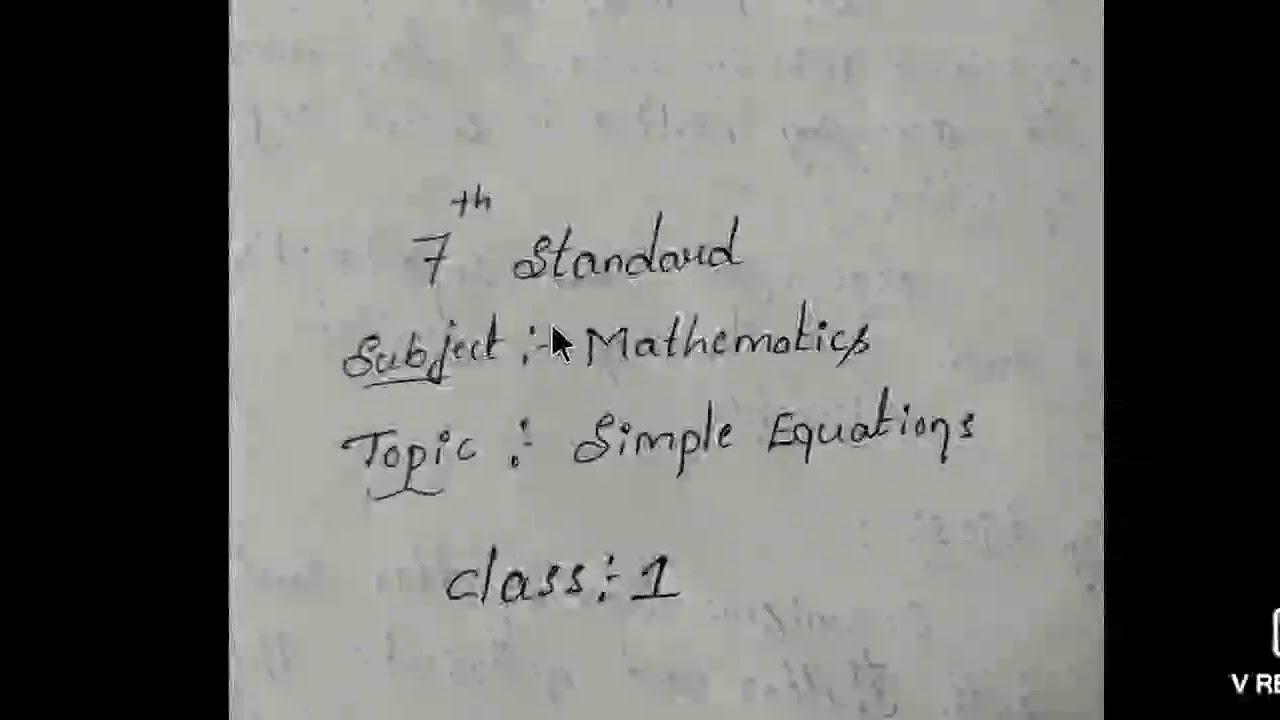 7th Standard
Subject :- Mathematics
Topic :- Simple Equations
class:- 1
V RE